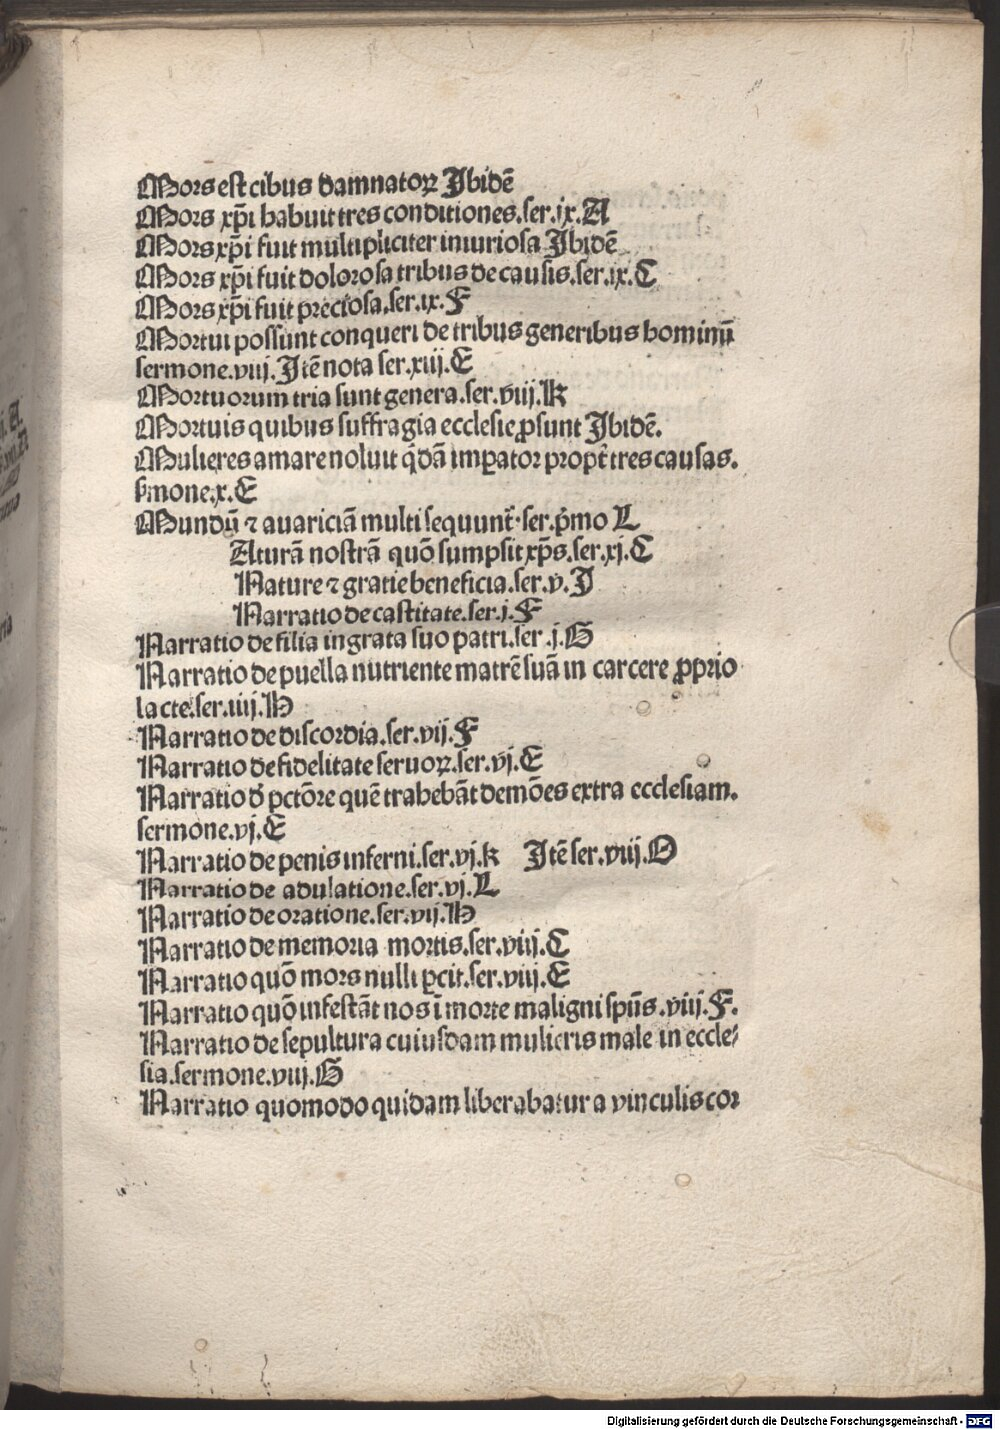 Mors est cibus damnatoꝝ Ibidē
Mors xp̄i habuit tres conditiones.ser.ix.A
Mors xp̄i fuit multipliciter iniuriosa Ibidē
Mors xp̄i fuit dolorosa tribus de causis.ser.ix.C
Mors xp̄i fuit preciosa.ser.ix.F
Mortui possunt conqueri de tribus generibus hominū
sermone.viij.Itē nota ser.xiij.E
Mortuorum tria sunt genera.ser.viij.K
Mortuis quibus suffragia ecclesie ꝓsunt Ibidē.
Mulieres amare noluit q̇dā imꝑator propt̄ tres causas.
ẜmone.x.E
Mundū ⁊ auariciā multi sequunt̄.ser.p̄mo L
Aturā nostrā quō sumpsit xp̄s.ser.xj.C
Nature ⁊ gratie beneficia.ser.v.I
Narratio de castitate.ser.j.F
Narratio de filia ingrata suo patri.ser.j.G
Narratio de puella nutriente matrē suā in carcere ꝓprio
lacte.ser.iiij.H
Narratio de discordia.ser.vij.F
Narratio de fidelitate seruoꝝ.ser.vj.E
Narratio đ pctōre quē trahebāt demōes extra ecclesiam.
sermone.vj.E
Narratio de penis inferni.ser.vj.k Itē ser.viij.O
Narratio de adulatione.ser.vj.L
Narratio de oratione.ser.vij.H
Narratio de memoria mortis.ser.viij.C
Narratio quō mors nulli ꝑcit.ser.viij.E
Narratio quō infestāt nos ī morte maligni spūs.viij.F.
Narratio de sepultura cuiusdam mulieris male in eccle⸗
sia.sermone.viij.G
Narratio quomodo quidam liberabatur a vinculis cor
Digitalisierung gefördert durch die Deutsche Forschungsgemeinschaft - DFG